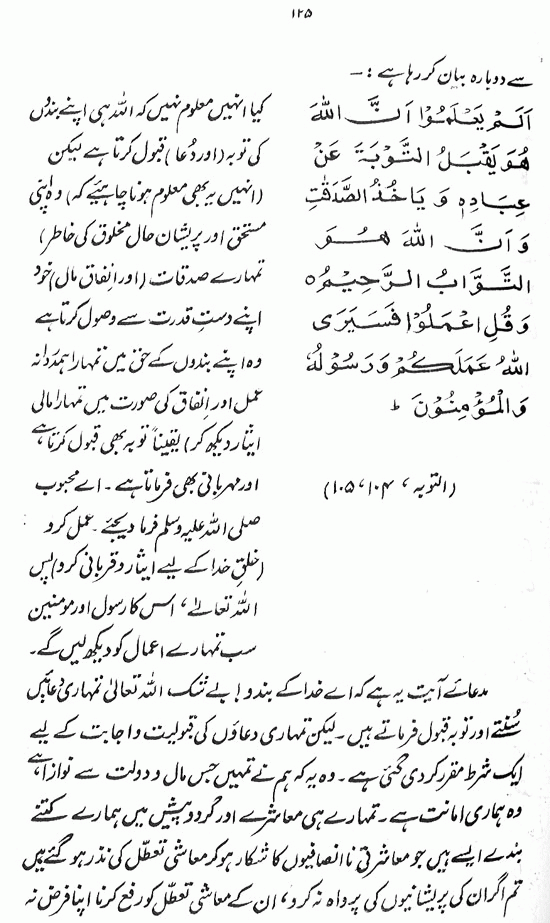 ۱۲۵
سے دوبارہ بیان کر رہا ہے :—
اَلَمْ یَعْلَمُوْٓا اَنَّ اللہَ
ھُوَ یَقْبَلُ التَّوْبَۃَ عَنْ
عِبَادِہٖ وَ یَاْخُذُ الصَّدَقٰتِ
وَاَنَّ اللہَ ھُوَ
التَّوَّابُ الرَّحِیْمُ o
وَقُلِ اعْمَلُوْا فَسَیَرَی
اللہُ عَمَلَکُمْ وَرَسُوْلُہٗ
وَالْمُؤْمِنُوْنَ ط
(التوبہ ، ۱۰۴، ۱۰۵)
کیا انہیں معلوم نہیں کہ اللہ ہی اپنے بندوں
کی توبہ (اور دُعا) قبول کرتا ہے لیکن
(انہیں یہ بھی معلوم ہونا چاہیئے کہ) وہ اپنی
مستحق اور پریشان حال مخلوق کی خاطر)
تمہارے صدقات (اور انفاقِ مال) خود
اپنے دستِ قدرت سے وصول کرتا ہے
وہ اپنے بندوں کے حق میں تمہارا ہمدردانہ
عمل اور انفاق کی صورت میں تمہارا مالی
ایثار دیکھ کر) یقیناً توبہ بھی قبول کرتا ہے
اور مہربانی بھی فرماتا ہے ۔ اے محبوب
صلی اللہ علیہ وسلم فرما دیجئے ۔ عمل کرو
(خلقِ خدا کے لیے ایثار و قربانی کرو) پس
اللہ تعالےٰ ، اس کا رسول اور مومنین
سب تمہارے اعمال کو دیکھ لیں گے ۔
مدعائے آیت یہ ہے کہ اے خدا کے بندو! بے شک، اللہ تعالیٰ تمہاری دعائیں
سُنتے اور توبہ قبول فرماتے ہیں ۔ لیکن تمہاری دعاؤں کی قبولیت و اجابت کے لیے
ایک شرط مقرر کر دی گئی ہے ۔ وہ یہ کہ ہم نے تمہیں جس مال و دولت سے نوازا ہے
وہ ہماری امانت ہے ۔ تمہارے ہی معاشرے اور گردوپیش میں ہمارے کتنے
بندے ایسے ہیں جو معاشرتی ناانصافیوں کا شکار ہو کر معاشی تعطّل کی نذر ہو گئے ہیں
تم اگر ان کی پریشانیوں کی پرواہ نہ کرو، ان کے معاشی تعطّل کو رفع کرنا اپنا فرض نہ